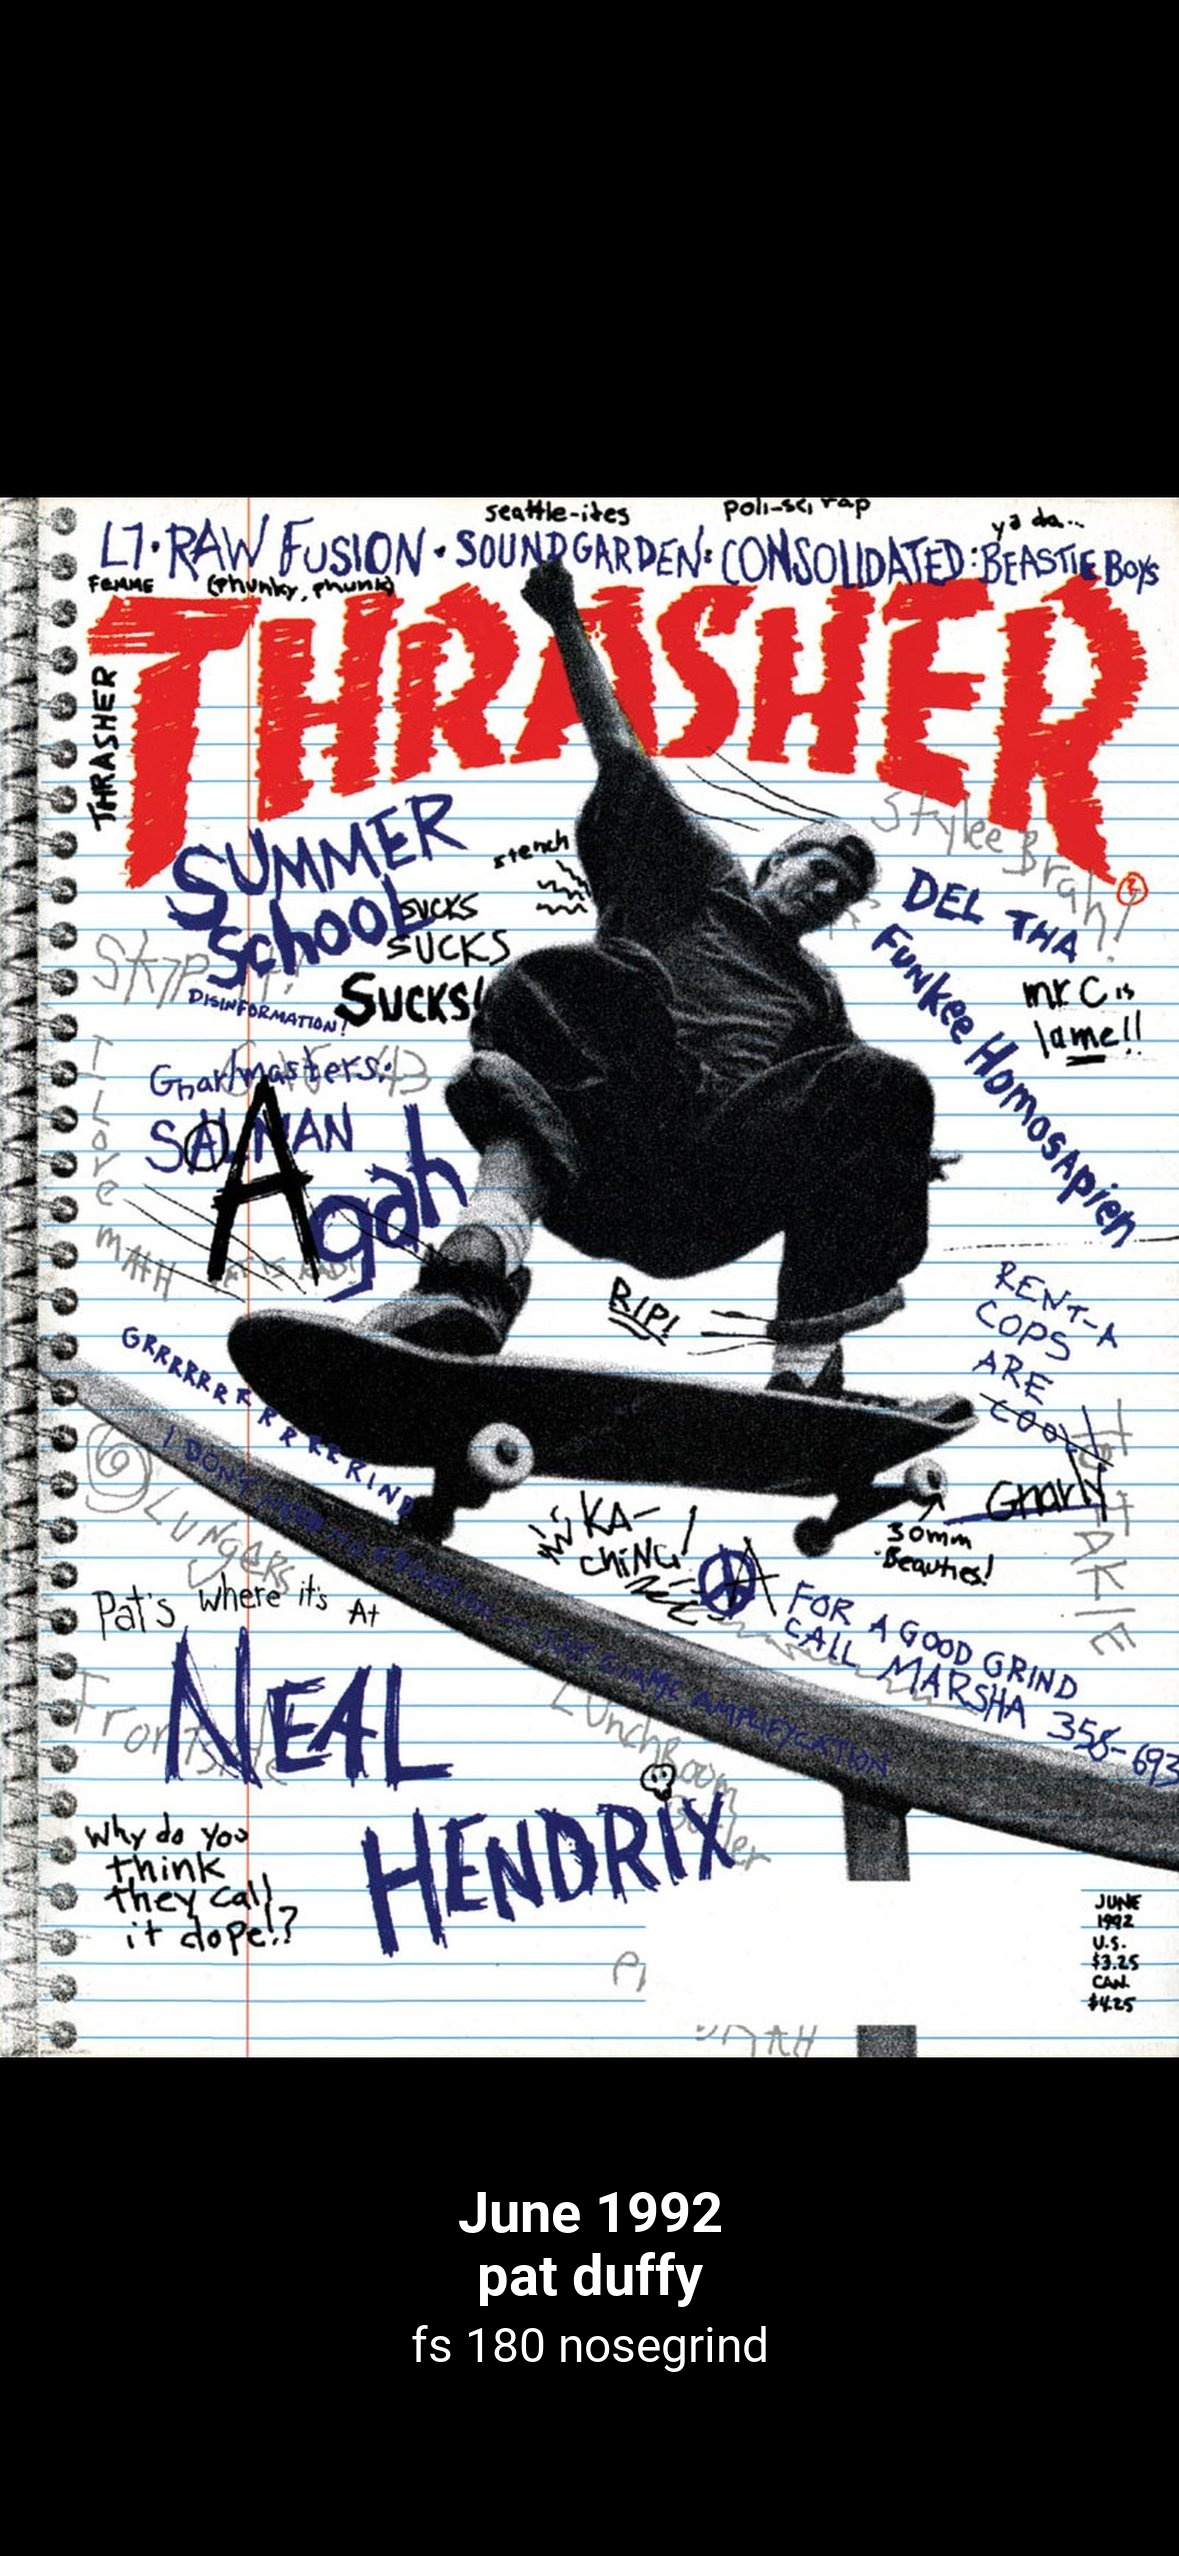 seattle-ites
poli-sci rap
ya da...
L7 · RAW FUSION · SOUNDGARDEN: CONSOLIDATED: BEASTIE BOYS
FEMME
(phunky, phunk)
THRASHER
THRASHER
SUMMER
School
SUCKS
SUCKS
SUCKS!
DISINFORMATION!
stench
Stylee Brah!
DEL THA
FUNkee HOmOSAPien
mr. C is
lame!!
Gnarlmasters:
SALMAN
Agah
I
Love
MATH
RIP!
RENT-A
COPS
ARE
COOL
Gnarly
GRRRRRRRRRRRRIND
I DON'T NEED NO EDUCATION -- JUST GIMME AMPLIFYCATION
LUNGERS
KA-
CHING!
30mm
Beauties!
TO FAKIE
FOR A GOOD GRIND
CALL MARSHA 358-693
Pat's where it's At
NEAL
HENDRIX
Frontside
LUnchRoom
Why do you
think
they call
it dope!?
JUNE
1992
U.S.
$3.25
CAN.
$4.25
June 1992
pat duffy
fs 180 nosegrind